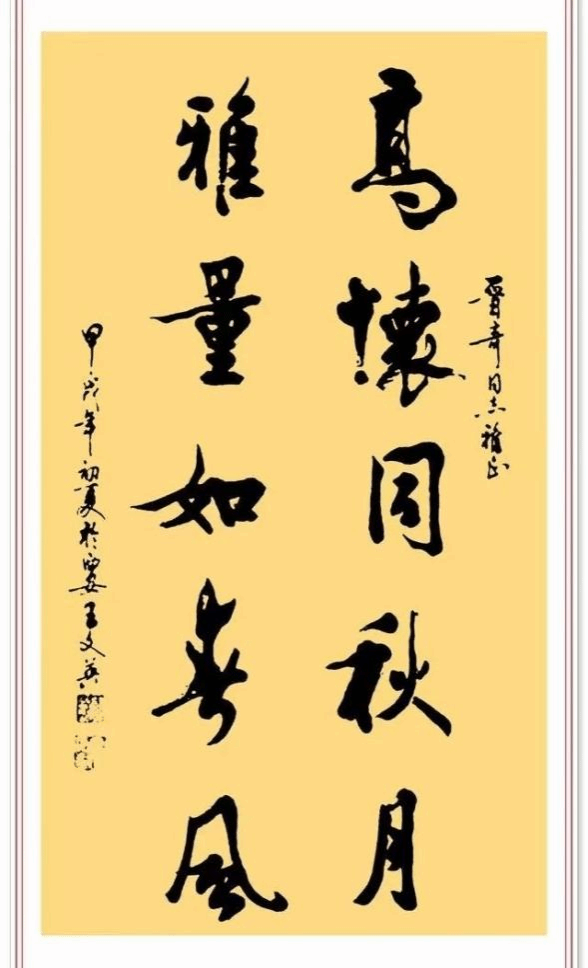 晋奇同志雅正
高懷同秋月
雅量如春風
甲戌年初夏於西安王文英